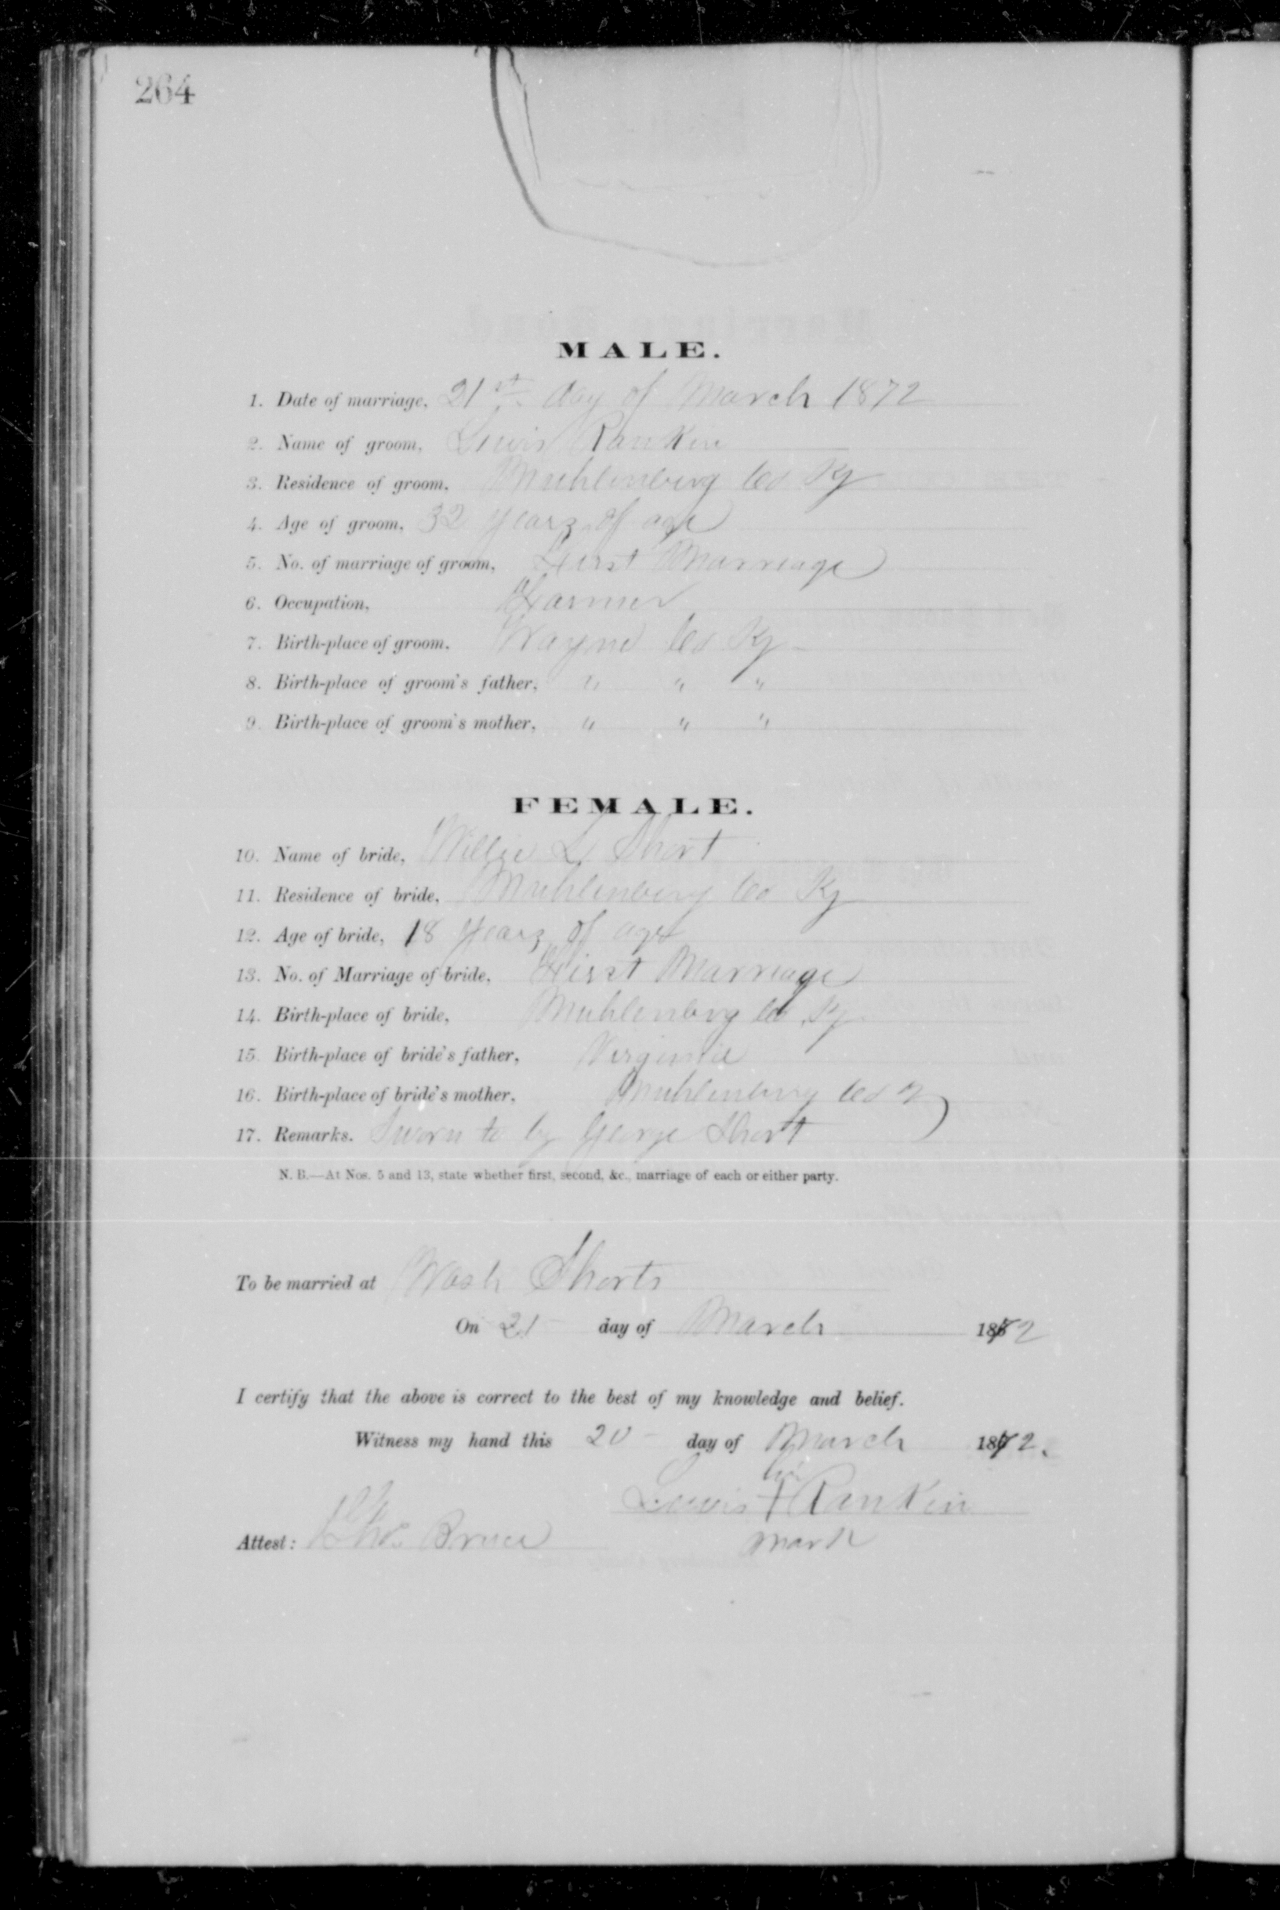 264
MALE.
1. Date of marriage, 21st day of March 1872
2. Name of groom, Lewis Rankin
3. Residence of groom, Muhlenberg Co Ky
4. Age of groom, 32 years of age
5. No. of marriage of groom, First Marriage
6. Occupation, Farmer
7. Birth-place of groom, Wayne Co Ky
8. Birth-place of groom's father, " " "
9. Birth-place of groom's mother, " " "
FEMALE.
10. Name of bride, Willie L Short
11. Residence of bride, Muhlenberg Co Ky
12. Age of bride, 18 years of age
13. No. of Marriage of bride, First Marriage
14. Birth-place of bride, Muhlenberg Co Ky
15. Birth-place of bride's father, Virginia
16. Birth-place of bride's mother, Muhlenberg Co
17. Remarks. Sworn to by George Short
N. B.—At Nos. 5 and 13, state whether first, second, &c., marriage of each or either party.
To be married at Wash Shorts
On 21 day of March 1872
I certify that the above is correct to the best of my knowledge and belief.
Witness my hand this 20 day of March 1872.
his
Lewis + Rankin
Attest: Thos Bruce mark